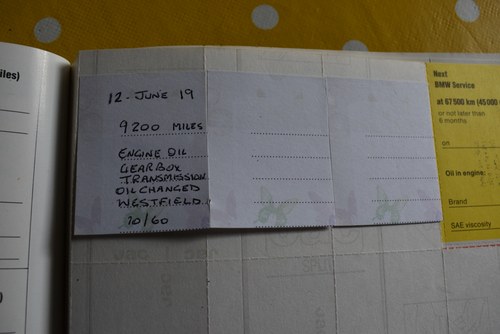 iles)
12. JUNE 19
9200 MILES
ENGINE OIL
GEARBOX
TRANSMISSION
OIL CHANGED
WESTFIELD.
20/60
Next
BMW Service
at 67 500 km (45 000
or not later than
6 months
on
Oil in engine:
Brand
SAE viscosity